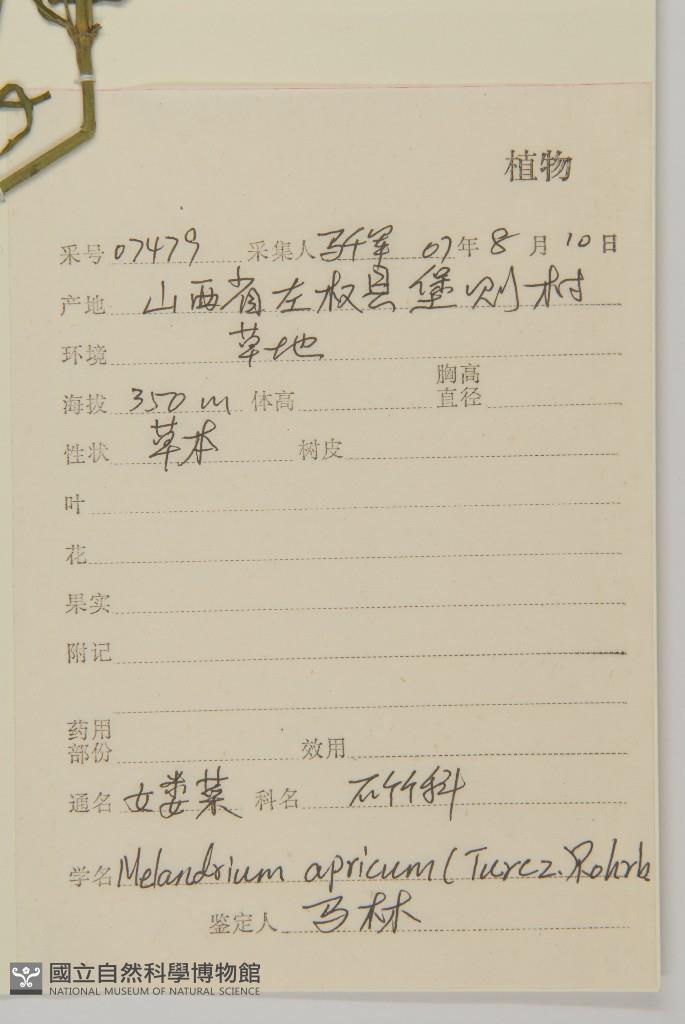 植物
采号 07479 采集人 马千军 07年 8 月 10 日
产地 山西省左权县堡则村
环境 草地
海拔 350 m 体高 胸高直径
性状 草本 树皮
叶
花
果实
附记
药用部份 效用
通名 女娄菜 科名 石竹科
学名 Melandrium apricum (Turcz.) Rohrb
鉴定人 马林
國立自然科學博物館
NATIONAL MUSEUM OF NATURAL SCIENCE